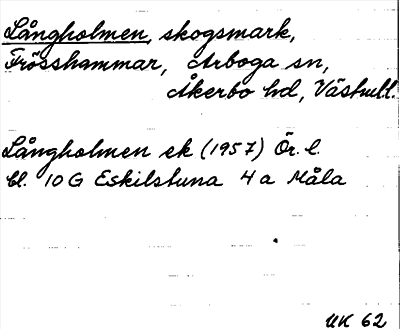 Långholmen, skogsmark,
Frösshammar, Arboga sn,
Åkerbo hd, Västmll.
Långholmen ek (1957) Ör. l.
bl. 10 G Eskilstuna 4 a Måla
UK 62